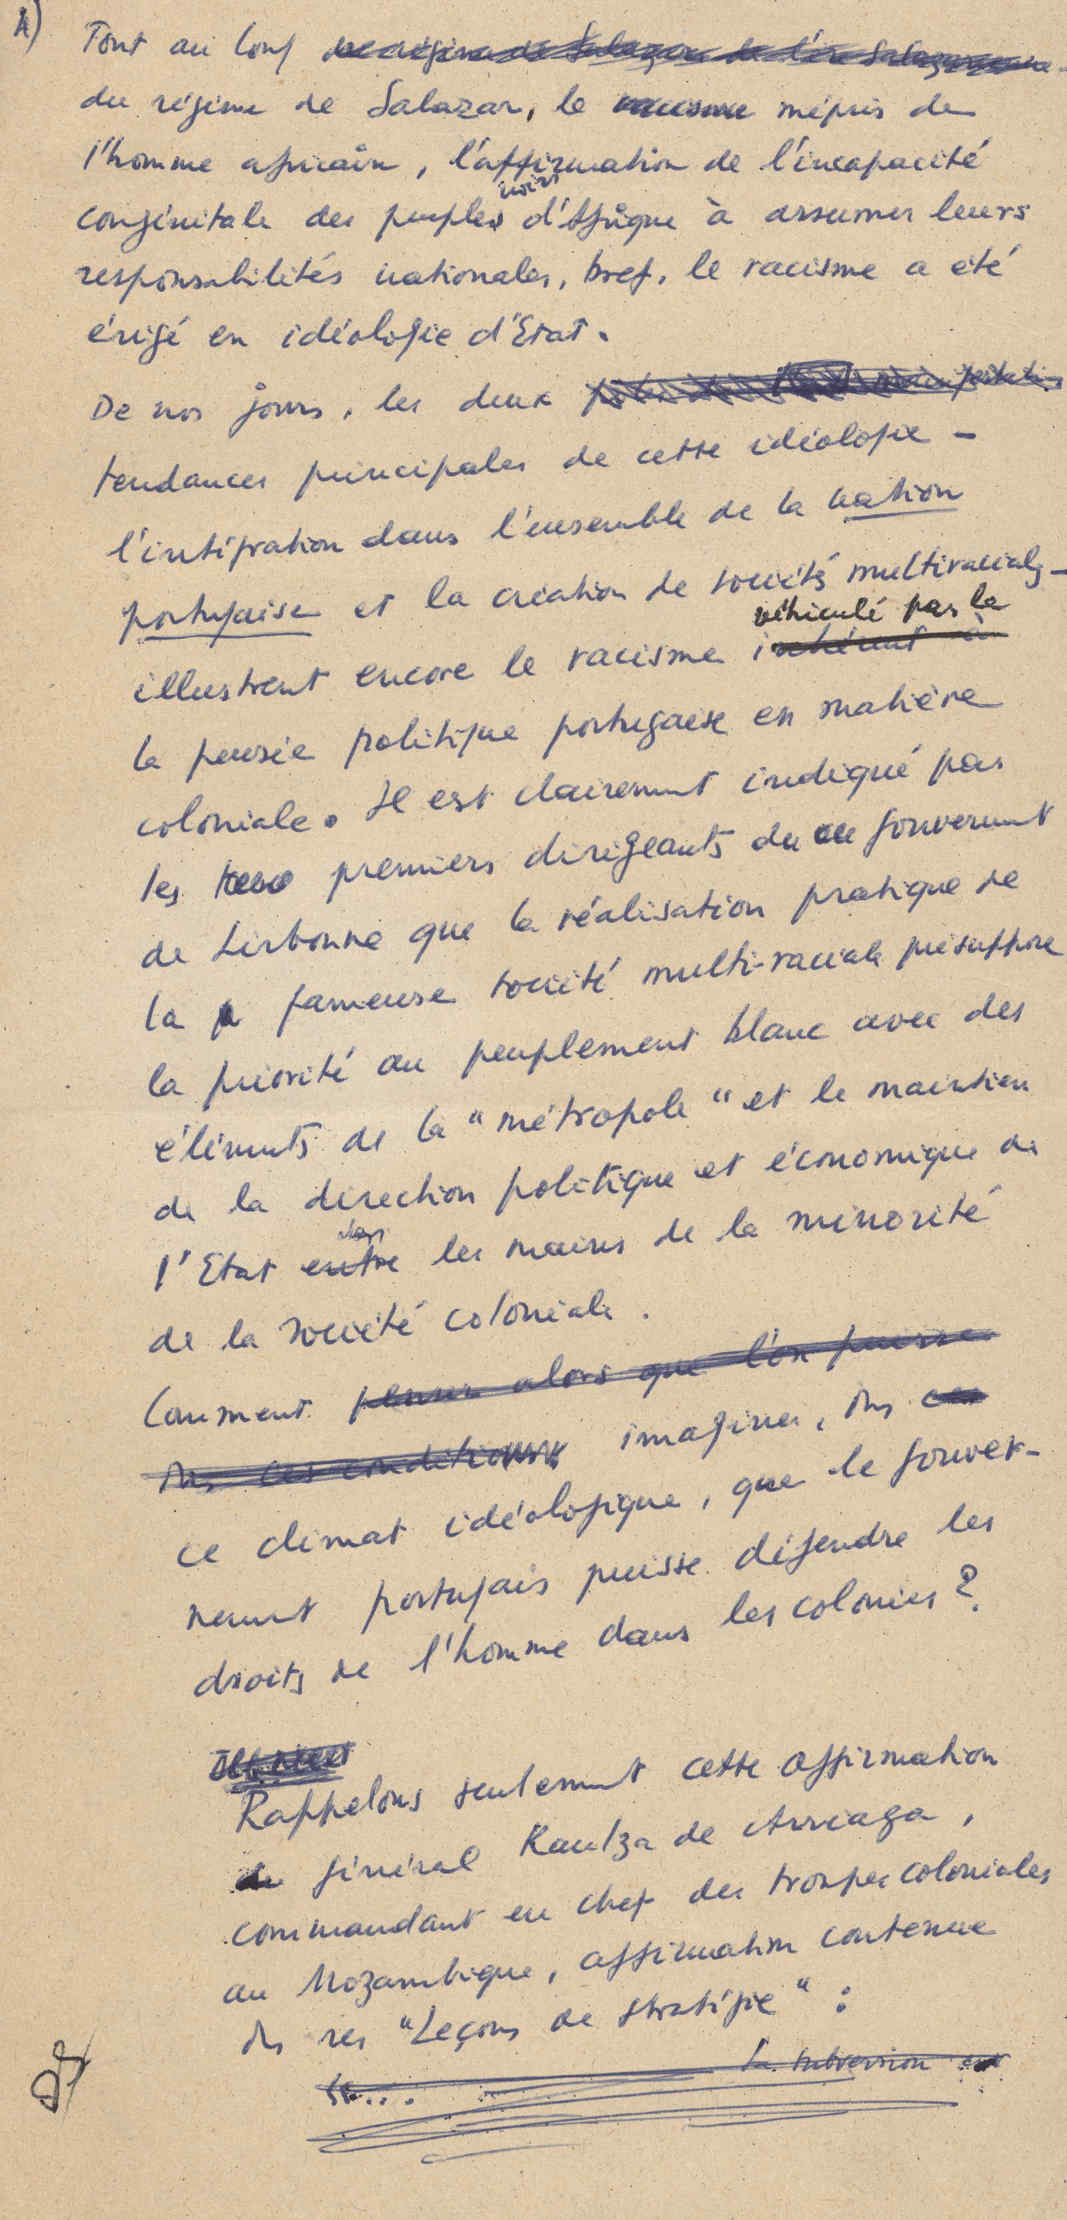 4) Tout au long du régime de Salazar de l'ère Salazarienne
du régime de Salazar, le racisme mépris de
l'homme africain, l'affirmation de l'incapacité
noirs
congénitale des peuples d'Afrique à assumer leurs
responsabilités nationales, bref, le racisme a été
érigé en idéologie d'Etat.
De nos jours, les deux
tendances principales de cette idéologie -
l'intégration dans l'ensemble de la nation
portugaise et la création de sociétés multiraciales -
véhiculé par la
illustrent encore le racisme inhérent à
la pensée politique portugaise en matière
coloniale. Il est clairement indiqué par
les premiers dirigeants du gouvernement
de Lisbonne que la réalisation pratique de
la fameuse société multi-raciale présuppose
la priorité au peuplement blanc avec des
éléments de la "métropole" et le maintien
de la direction politique et économique de
dans
l'Etat entre les mains de la minorité
de la société coloniale.
Comment penser alors que l'on puisse
ds ces conditions imaginer, ds ces
ce climat idéologique, que le gouver-
nement portugais puisse défendre les
droits de l'homme dans les colonies ?
Rappelons seulement cette affirmation
du général Kaulza de Arriaga,
commandant en chef des troupes coloniales
au Mozambique, affirmation contenue
ds ses "Leçons de stratégie" :
La subversion est